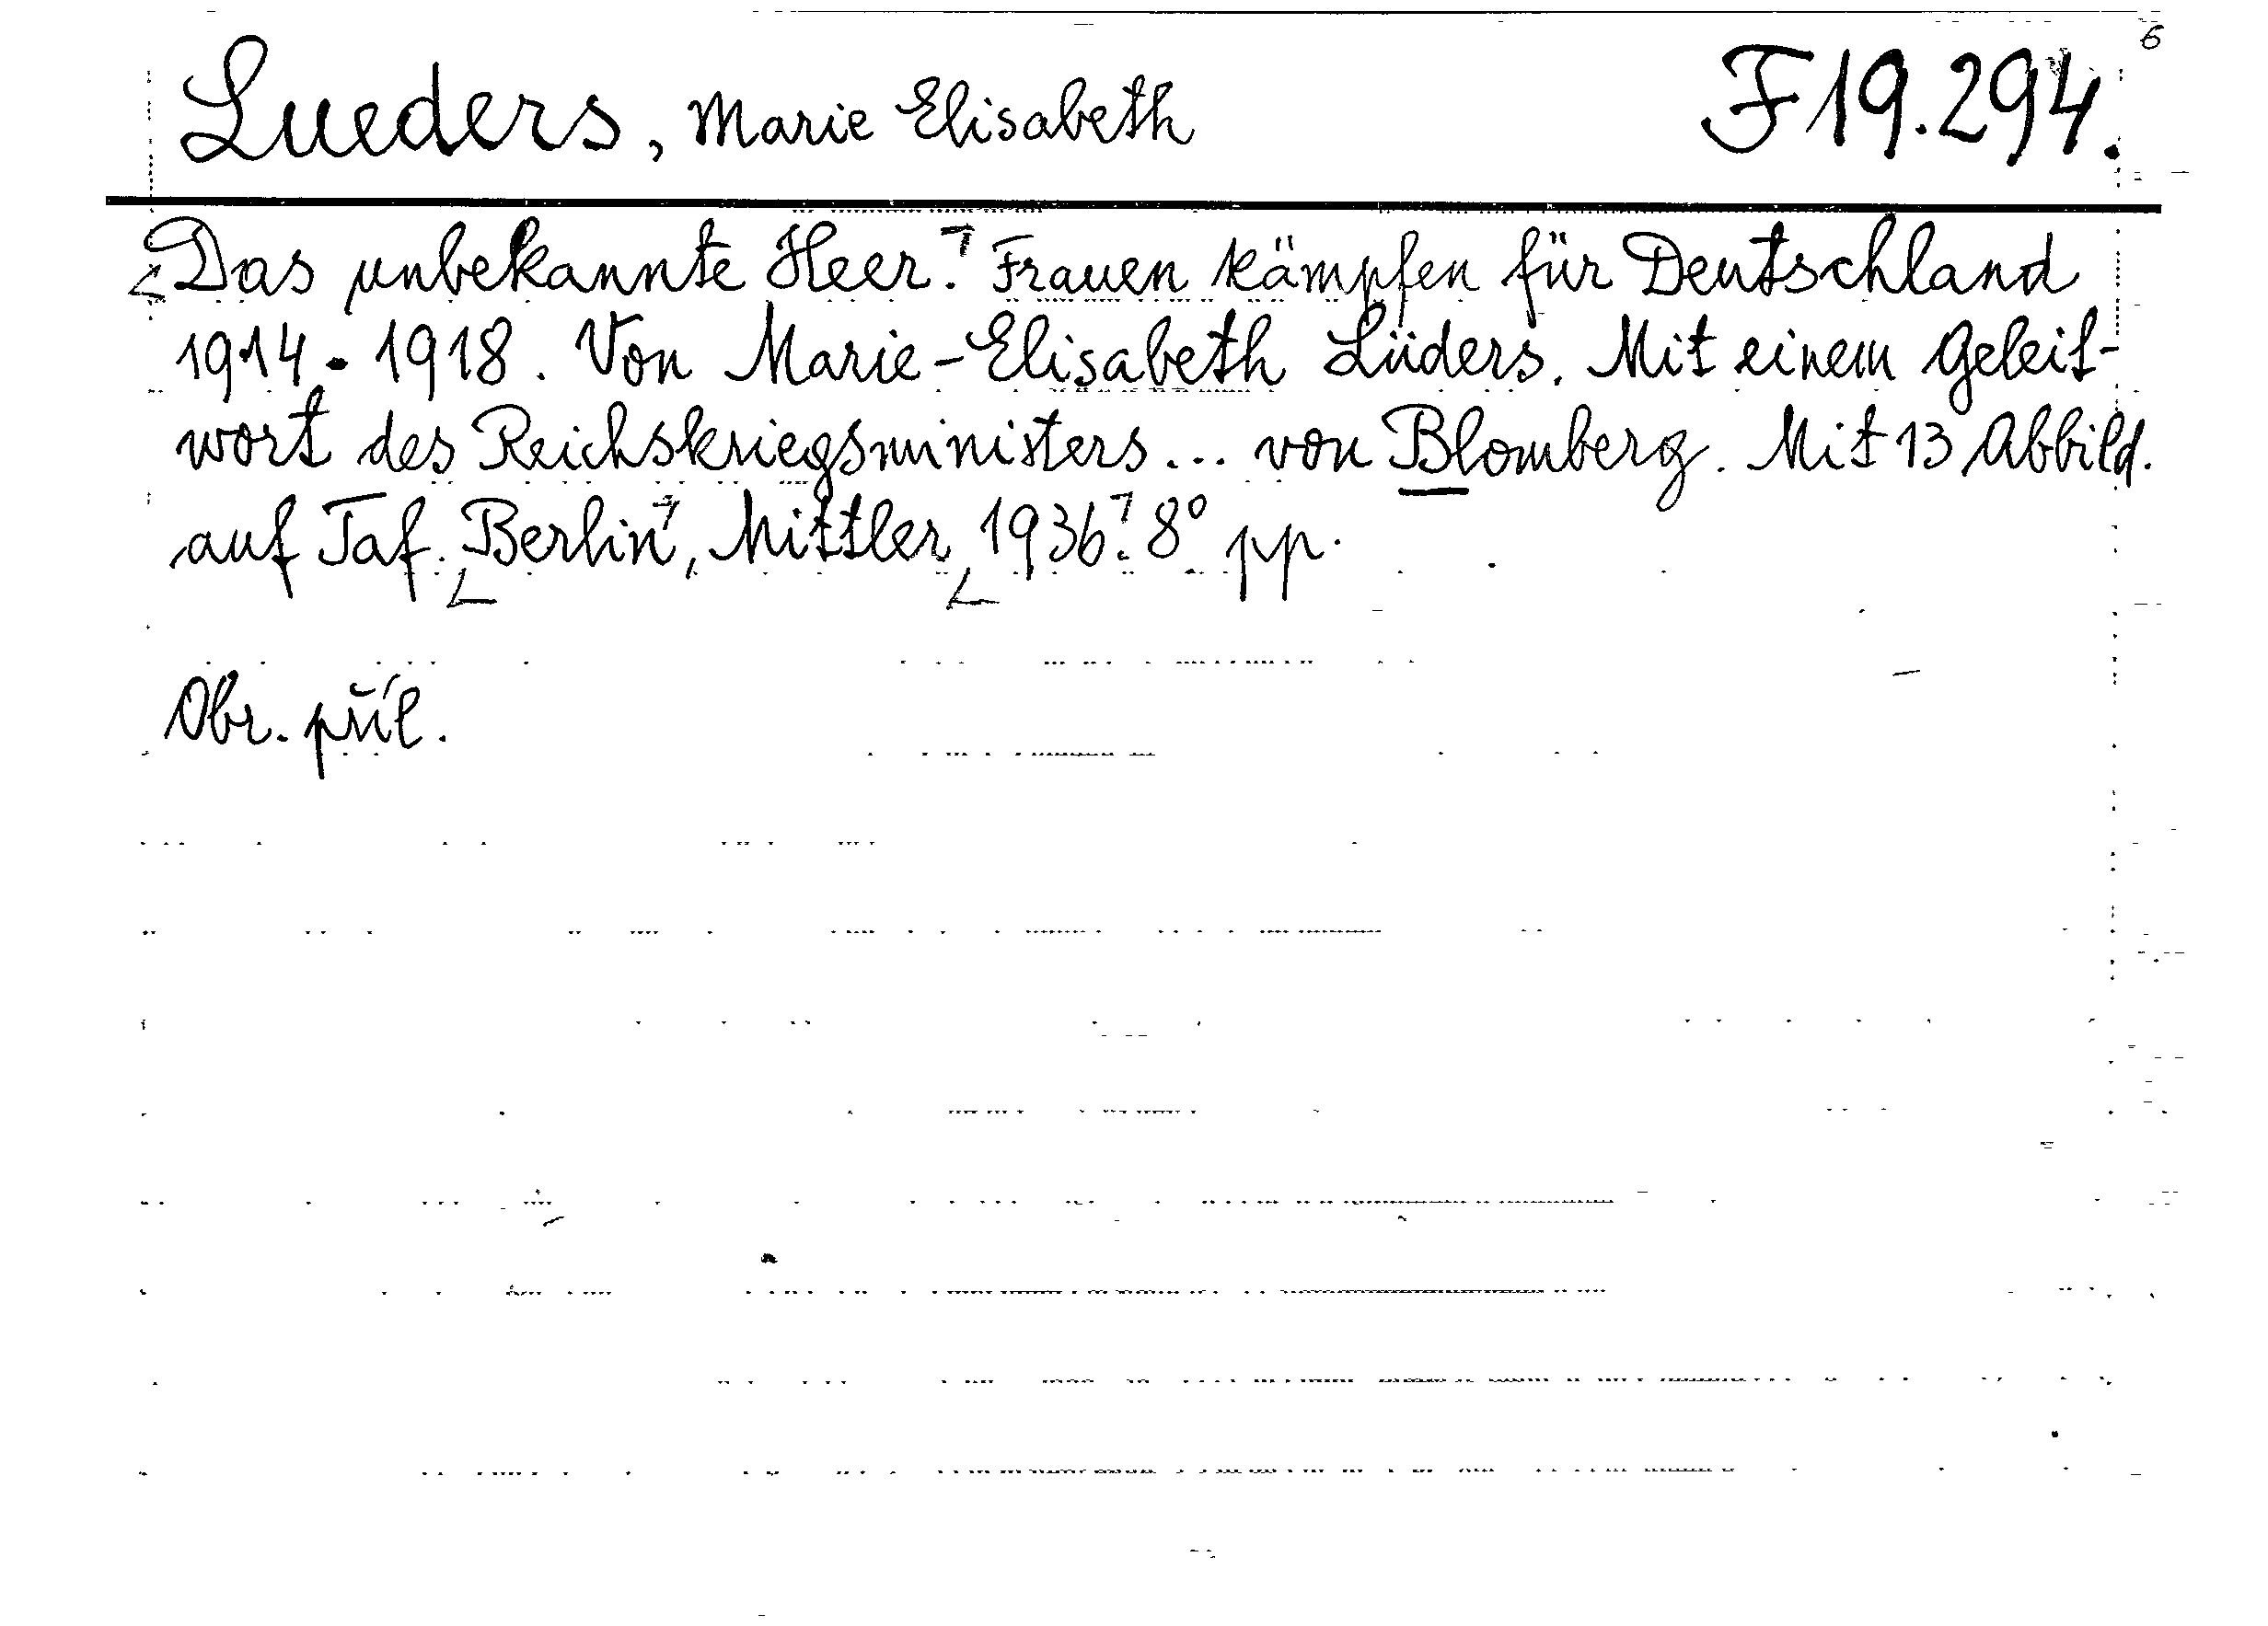 6
Lueders, Marie Elisabeth F19.294.
Das unbekannte Heer. Frauen kämpfen für Deutschland
1914-1918. Von Marie-Elisabeth Lüders. Mit einem Geleit-
wort des Reichskriegsministers... von Blomberg. Mit 13 Abbild.
auf Taf. Berlin, Mittler, 1936. 8° pp.
Obr. příl.